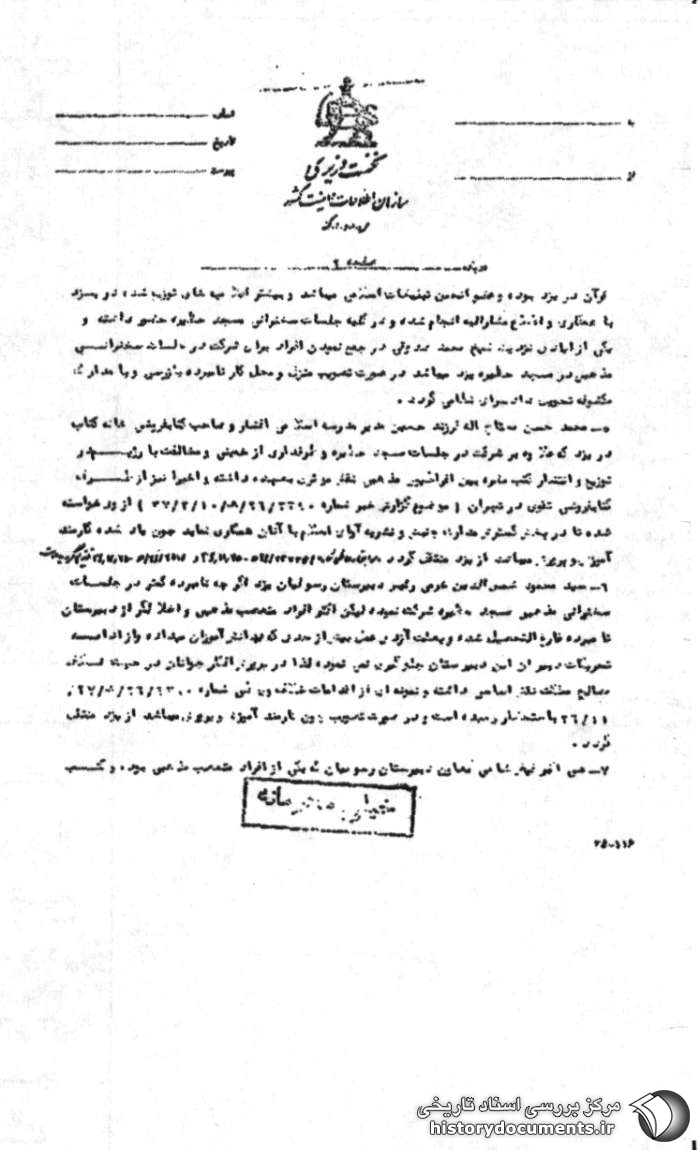 به
از
شماره
تاریخ
پیوست
نخست وزیری
سازمان اطلاعات و امنیت کشور
س.ا.و.ا.ک
درباره صفحه ۲
قرآن در یزد بوده و عضو انجمن تبلیغات اسلامی میباشد و بیشتر اعلامیه های توزیع شده در یزد
با همکاری و اطلاع مشارالیه انجام شده و در کلیه جلسات سخنرانی مسجد حظیره حضور داشته و
یکی از عاملین نزدیک شیخ محمد صدوقی در جمع نمودن افراد برای شرکت در جلسات سخنرانی
مذهبی در مسجد حظیره یزد میباشد در صورت تصویب منزل و محل کار نامبرده بازرسی و با مدارک
مکشوفه تحویل دادسرای نظامی گردد .
۵ـ محمد حسن فرزند حسین مدیر مدرسه اسلامی افشار و صاحب کتابفروشی خانه کتاب
در یزد که علاوه بر شرکت در جلسات مسجد حظیره و طرفداری از خمینی و مخالفت با رژیم در
توزیع و انتشار کتب مضره بین افراطیون مذهبی نقش موثری بعهده داشته و اخیرا نیز از طرف
کتابفروشی در تهران ( موضوع گزارش خبر شماره از وی درخواست
شده تا در پخش نشریه آوای اسلام با آنان همکاری نماید چون یاد شده کارمند
آموزش و پرورش میباشد از یزد منتقل گردد
۶ـ سید محمود شمس الدین رئیس دبیرستان رسولیان یزد اگر چه نامبرده کمتر در جلسات
سخنرانی مذهبی مسجد حظیره شرکت نموده لیکن اکثر افراد متعصب مذهبی و اخلالگر از دبیرستان
نامبرده فارغ التحصیل شده و بعلت آزادی عمل بیش از حدی که بدانش آموزان میداده و از ادامه
تحریکات دبیران این دبیرستان جلوگیری نمی نموده لذا در پرورش افکار جوانان در جهت خلاف
مصالح مملکت نقش اساسی داشته و نمونه ای از اقدامات خلاف وی طی شماره
باستحضار رسیده است و در صورت تصویب چون کارمند آموزش و پرورش میباشد از یزد منتقل
گردد .
۷ـ علی اکبر معاون دبیرستان رسولیان که یکی از افراد متعصب مذهبی بوده و کتب
خیلی محرمانه
۲۵-۱۱۶
مرکز بررسی اسناد تاریخی
historydocuments.ir